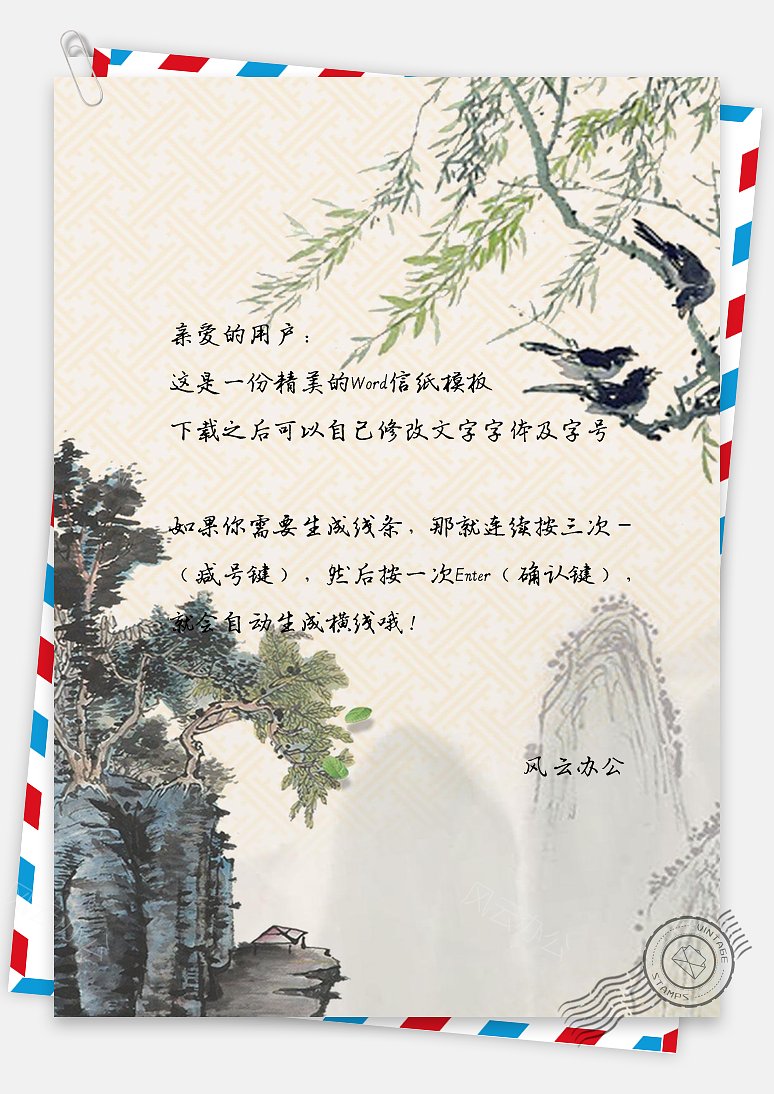 亲爱的用户：
这是一份精美的Word信纸模板
下载之后可以自己修改文字字体及字号
如果你需要生成线条，那就连续按三次－
（减号键），然后按一次Enter（确认键），
就会自动生成横线哦！
风云办公
风云办公
VINTAGE
STAMPS